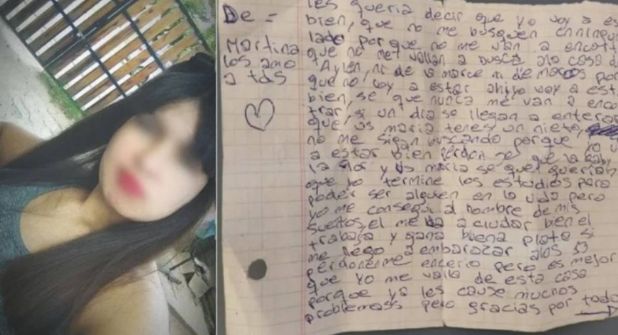 De =
Martina
los amo
a tds
les queria decir que yo voy a es
bien, que no me busquen en ningun
lado porque no me van a encont
que no me vallan a busca ala casa d
Aylen, ni de la marce ni de marcos por
que no voy a estar ahi yo voy a est
bien, se que nunca me van a enco
trar, si un dia se llegan a enteras
que vs maria tenes un nieto
no me sigan buscando porque yo v
a estar bien perdon se que la
la flor y vs maria se que querian
que yo termine los estudios para
poder ser alguien en la vida pero
yo me consegui al hombre de mis
sueños, el me va a cuidar bien el
trabaja y gana buena plata si
me llego a embarazar alos 13
perdonenme enserio pero es mejor
que yo me valla de esta casa
porque ya les cause muchos
problemass pero gracias por todo